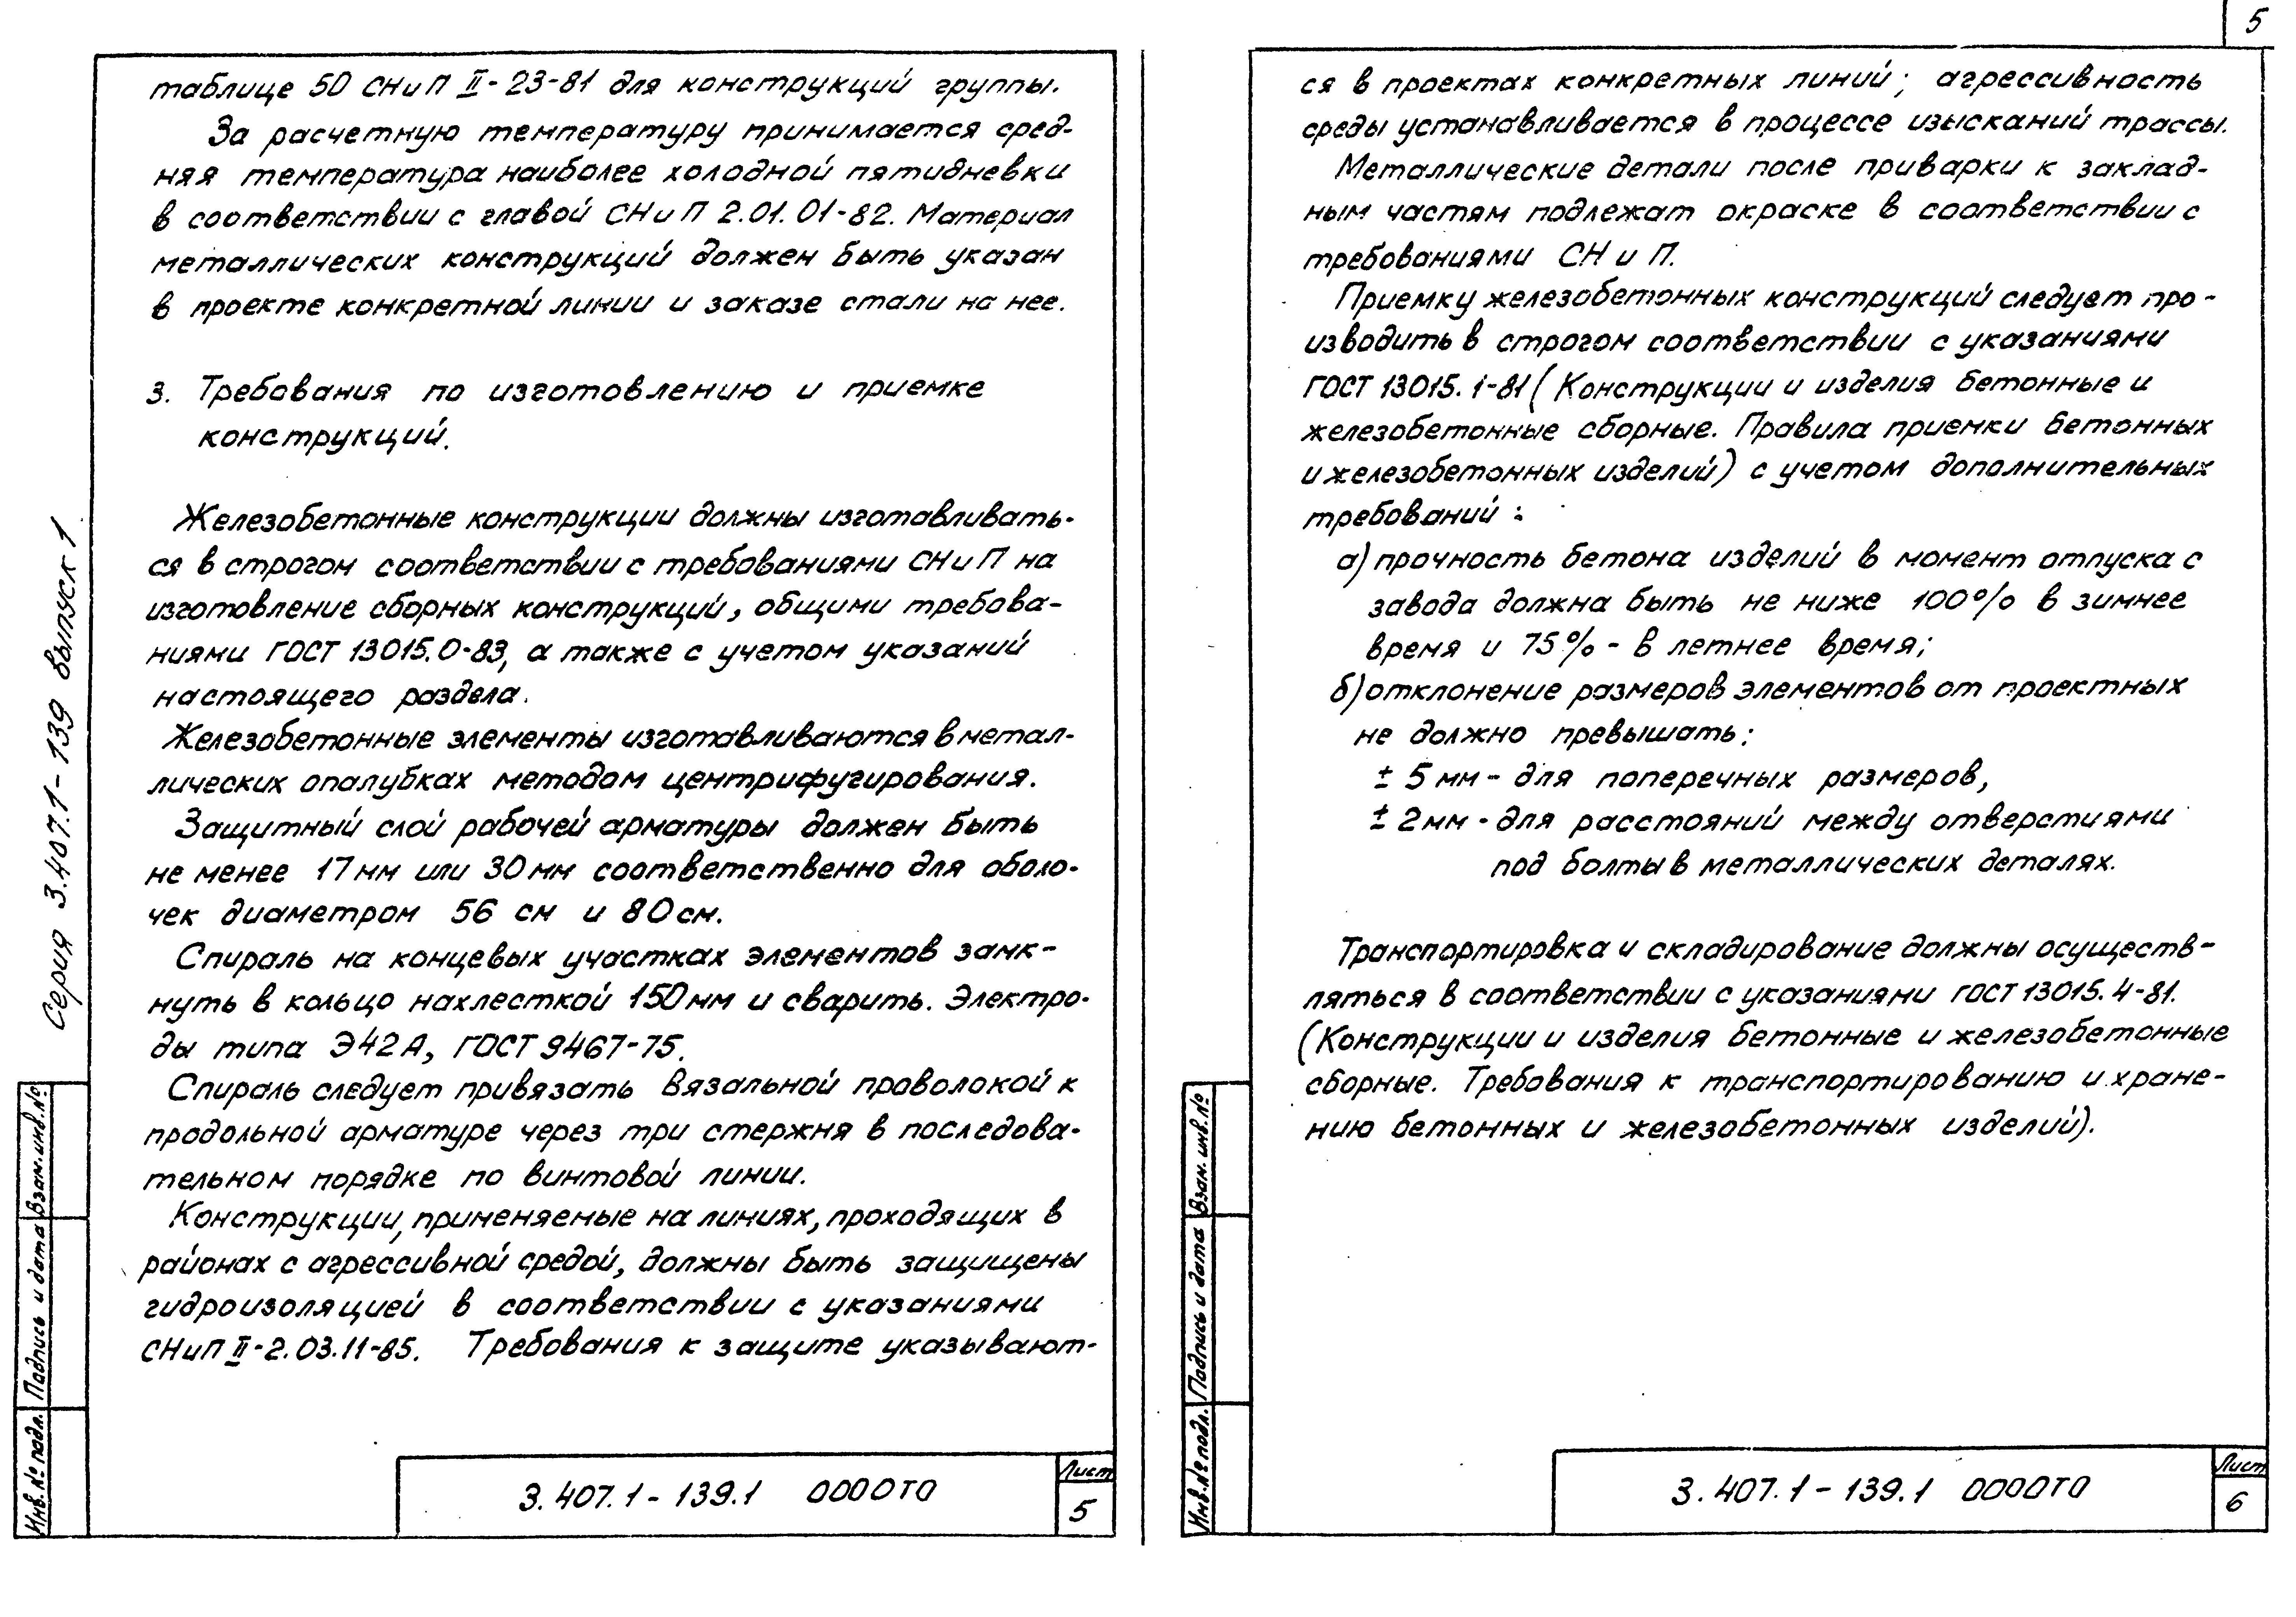 5
таблице 50 СНиП II-23-81 для конструкций группы.
За расчетную температуру принимается сред-
няя температура наиболее холодной пятидневки
в соответствии с главой СНиП 2.01.01-82. Материал
металлических конструкций должен быть указан
в проекте конкретной линии и заказе стали на нее.
3. Требования по изготовлению и приемке
конструкций.
Железобетонные конструкции должны изготавливать-
ся в строгом соответствии с требованиями СНиП на
изготовление сборных конструкций, общими требова-
ниями ГОСТ 13015.0-83, а также с учетом указаний
настоящего раздела.
Железобетонные элементы изготавливаются в метал-
лических опалубках методом центрифугирования.
Защитный слой рабочей арматуры должен быть
не менее 17 мм или 30 мм соответственно для оболо-
чек диаметром 56 см и 80 см.
Спираль на концевых участках элементов замк-
нуть в кольцо нахлесткой 150 мм и сварить. Электро-
ды типа Э42А, ГОСТ 9467-75.
Спираль следует привязать вязальной проволокой к
продольной арматуре через три стержня в последова-
тельном порядке по винтовой линии.
Конструкции, применяемые на линиях, проходящих в
районах с агрессивной средой, должны быть защищены
гидроизоляцией в соответствии с указаниями
СНиП II-2.03.11-85. Требования к защите указывают-
3.407.1-139.1 0000ТО
Лист
5
Серия 3.407.1-139 выпуск 1
Взам. инв. №
Подпись и дата
Инв. № подл.
ся в проектах конкретных линий; агрессивность
среды устанавливается в процессе изысканий трассы.
Металлические детали после приварки к заклад-
ным частям подлежат окраске в соответствии с
требованиями СНиП.
Приемку железобетонных конструкций следует про-
изводить в строгом соответствии с указаниями
ГОСТ 13015.1-81 (Конструкции и изделия бетонные и
железобетонные сборные. Правила приемки бетонных
и железобетонных изделий) с учетом дополнительных
требований:
а) прочность бетона изделий в момент отпуска с
завода должна быть не ниже 100% в зимнее
время и 75% - в летнее время;
б) отклонение размеров элементов от проектных
не должно превышать:
± 5 мм - для поперечных размеров,
± 2 мм - для расстояний между отверстиями
под болты в металлических деталях.
Транспортировка и складирование должны осуществ-
ляться в соответствии с указаниями ГОСТ 13015.4-81.
(Конструкции и изделия бетонные и железобетонные
сборные. Требования к транспортированию и хране-
нию бетонных и железобетонных изделий).
3.407.1-139.1 0000ТО
Лист
6
Взам. инв. №
Подпись и дата
Инв. № подл.